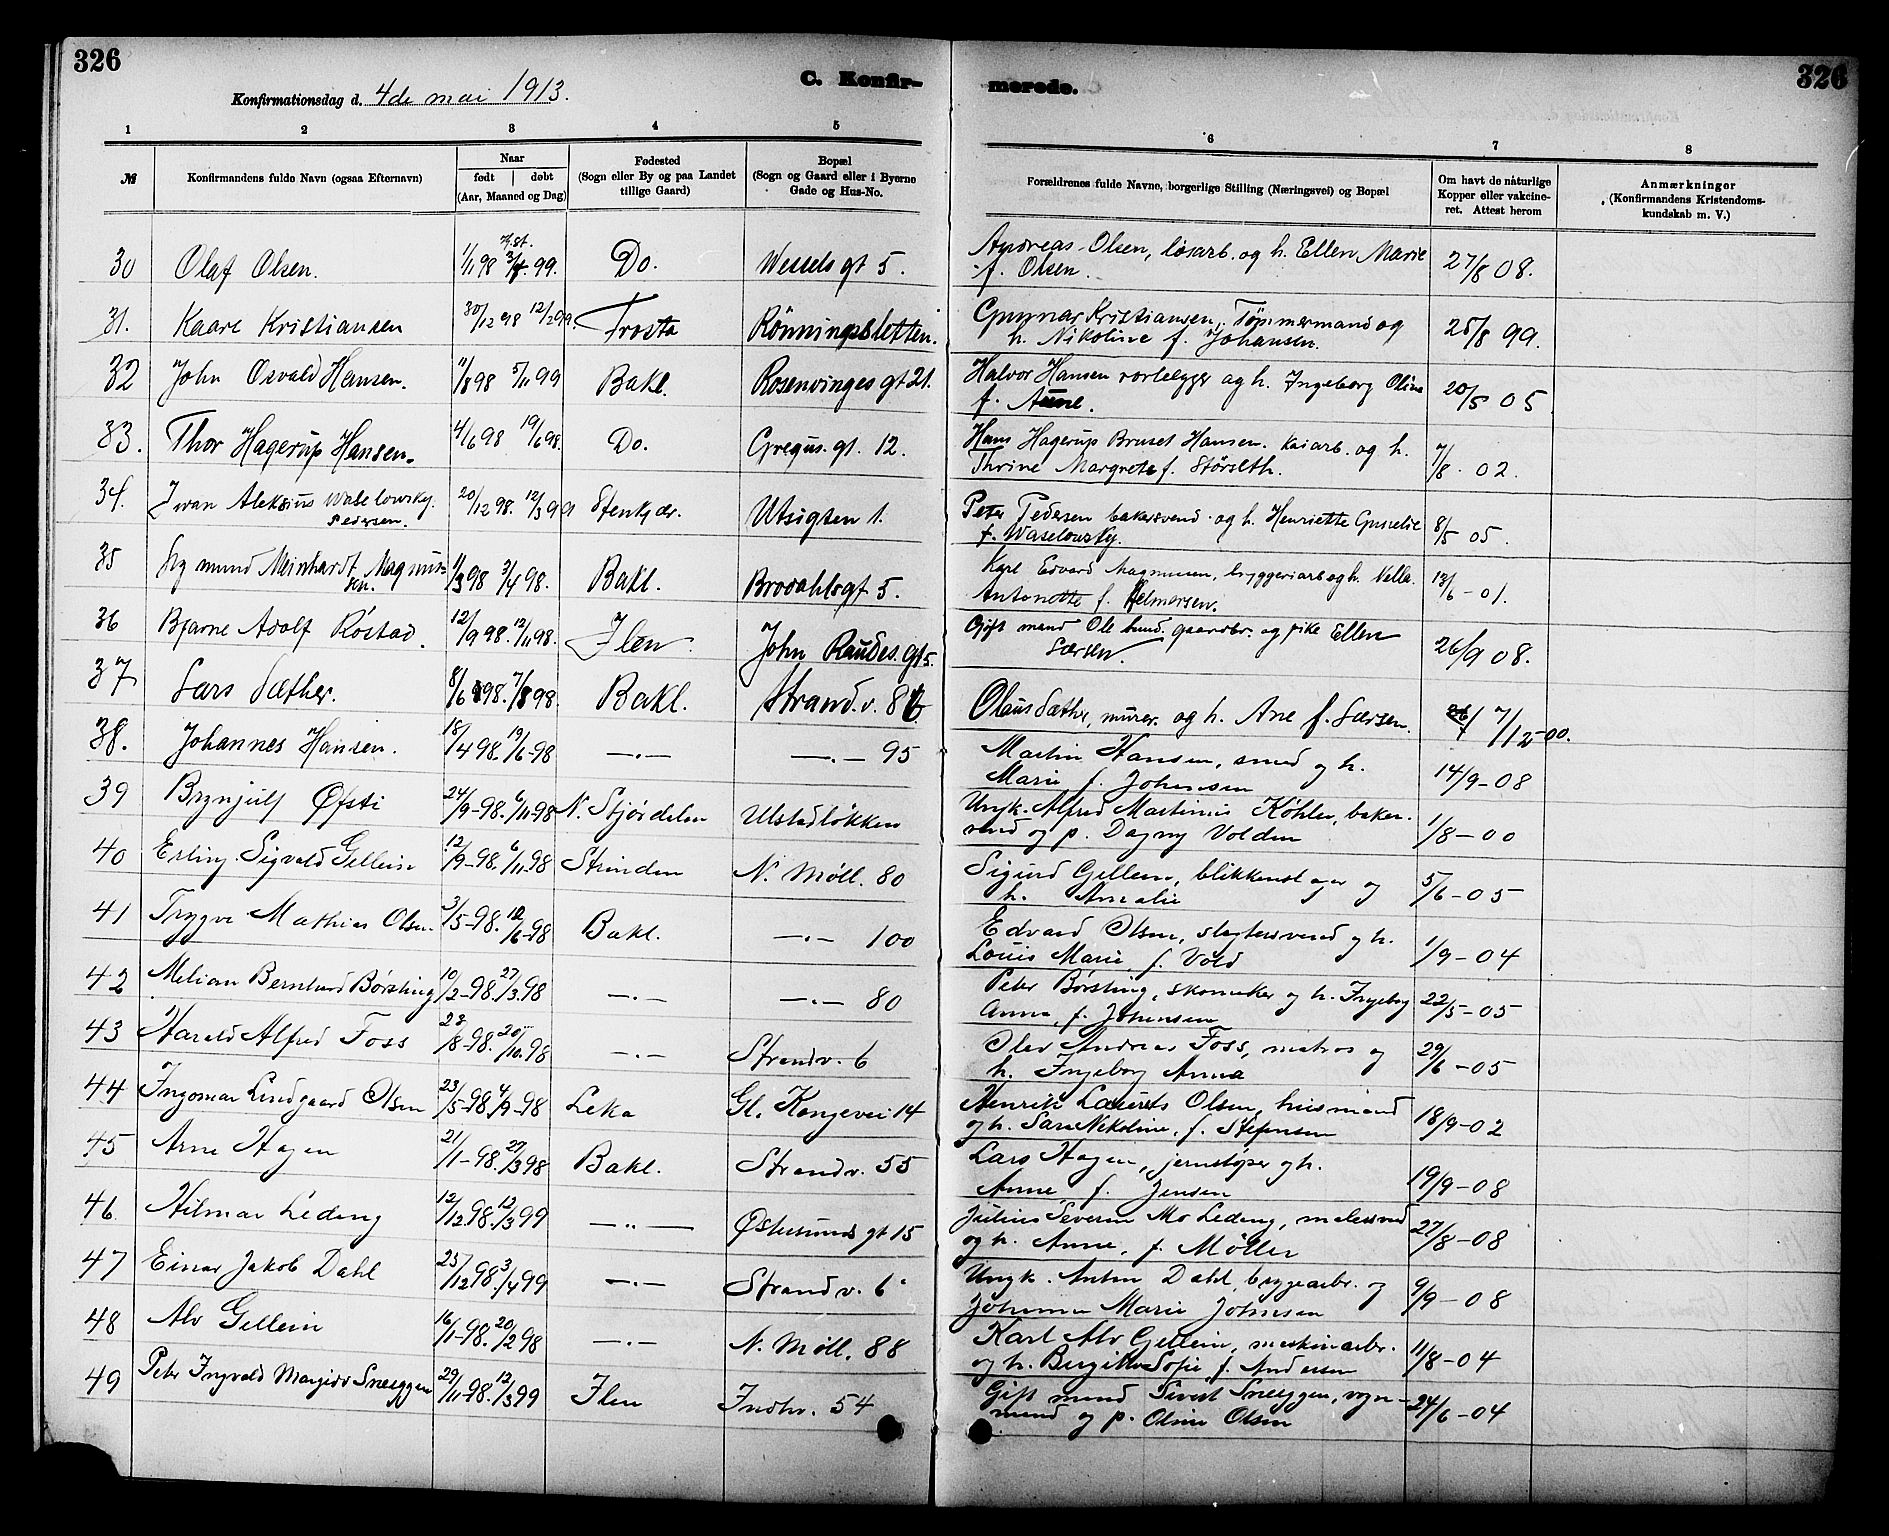 326
C. Konfir-
merede.
326
Konfirmationsdag d. 4de mai 1913.
1 2 3 4 5 6 7 8
№ Konfirmandens fulde Navn (ogsaa Efternavn) Naar født døbt (Aar, Maaned og Dag) Fødested (Sogn eller By og paa Landet tillige Gaard) Bopæl (Sogn og Gaard eller i Byerne Gade og Hus-No. Forældrenes fulde Navne, borgerlige Stilling (Næringsvei) og Bopæl Om havt de naturlige Kopper eller vakcineret. Attest herom Anmærkninger (Konfirmandens Kristendomskundskab m. V.)
30 Olaf Olsen. 1/11 98 3/4 99. Do. Wessels gt 5. Andreas Olsen, løsarb. og h. Ellen Marie
f. Olsen. 27/8 08.
31. Kaare Kristiansen 30/12 98 12/2 99. Frosta Rönningsletten. Gunnar Kristiansen, Tömmermand og
h. Nikoline f. Johansen. 25/8 99.
32 John Osvald Hansen. 11/8 98 5/11 99 Bakl. Rosenvinges gt 21. Halvor Hansen rørlegger og h. Ingeborg Oline
f. Aune. 20/5 05
33. Thor Hagerup Hansen. 4/6 98 19/6 98. Do. Gregus. gt. 12. Hans Hagerup Bruset Hansen. kaiarb. og h.
Thrine Margrete f. Störseth. 7/8. 02.
34. Iwan Aleksius Waselowsky
Pedersen. 20/12 98. 12/3 99 Stenkjær. Utsigten 1. Peter Pedersen bakersvend og h. Henriette
f. Waselowsky. 8/5 05.
35 Sigmund Meinhardt Magnus-
sen. 11/3 98 3/4 98. Bakl. Brodahlsgt 5. Karl Edvard Magnussen, bryggeriarb og h.
Antonette f. Helmersen. 13/6 - 01.
36 Bjarne Adolf Röstad. 12/9 98. 12/11 98. Ilen. John Raudes gt 5. Gift mand Ole Sund. gaardbr. og pike Ellen
Larsen. 26/9 08.
37 Lars Sæther. 8/6 98. 7/8 98. Bakl. Strand.v. 86 Olaus Sæther, murer. og h. Ane f. Larsen. 7/12-00.
38. Johannes Hansen. 18/4 98. 19/6-98 —.— —.— 95 Martin Hansen, smed og h.
Marie f. Johansen 14/9-08
39 Brynjulf Øfsti 24/9-98. 6/11-98 N. Stjørdalen Ulstadløkken Ungk. Alfred Martinius Köhler, baker-
svend og p. Dagny Volden 1/8-00
40 Erling Sigvald Gellein 12/9-98. 6/11-98 Strinden N. Möll. 80 Sigurd Gellein, blikkenslager og
h. Amalie 5/6-05
41 Trygve Mathias Olsen. 3/5-98. 12/6-98 Bakl. —.— 100 Edvard Olsen, slagtersvend og h.
Louis Marie f. Vold 1/9-04
42 Melian Bernhard Børsting 10/2-98. 27/3.98 —.— —.— 80 Peter Børsting, skomaker og h. Ingeborg
Anna, f. Johansen 22/5-05
43 Harald Alfred Foss 23/8-98. 20/10.98 —.— Strandv. 6 Olav Andreas Foss, matros og
h. Ingeborg Anna 29/6-05
44 Ingomar Lindgaard Olsen 23/5-98. 4/9-98 Leka Gl. Kongevei 14 Henrik Laurits Olsen, husmand
og h. Sara Nikoline, f. Stefensen 18/9-02
45 Arne Hagen 21/1-98. 27/3 98 Bakl. Strandv. 55 Lars Hagen, jernstøper og h.
Anne f. Jensen 19/9-08
46 Hilmar Leding 12/12 98. 12/3 99 —..— Østersunds gt 15 Julius Severin Mo Leding, malersvend
og h. Anne, f. Møller 27/8-08
47 Einar Jakob Dahl 25/12 98. 3/4 99 —.— Strandv. 6 Ungk. Anton Dahl, bryggearbr. og
Johanna Marie Johnsen 9/9-08
48 Alv Gellein 16/11-98. 20/2 98 —.— N. Möll. 88 Karl Alv Gellein, maskinarbr.
og h. Birgitte Sofie f. Andersen 11/8-04
49 Peter Ingvald Margido Sneeggen 29/11-98. 12/3 99 Ilen Indhr. 54 Gift mand Sivert Sneeggen, vogn-
mand og p. Oline Olsen 24/6-04